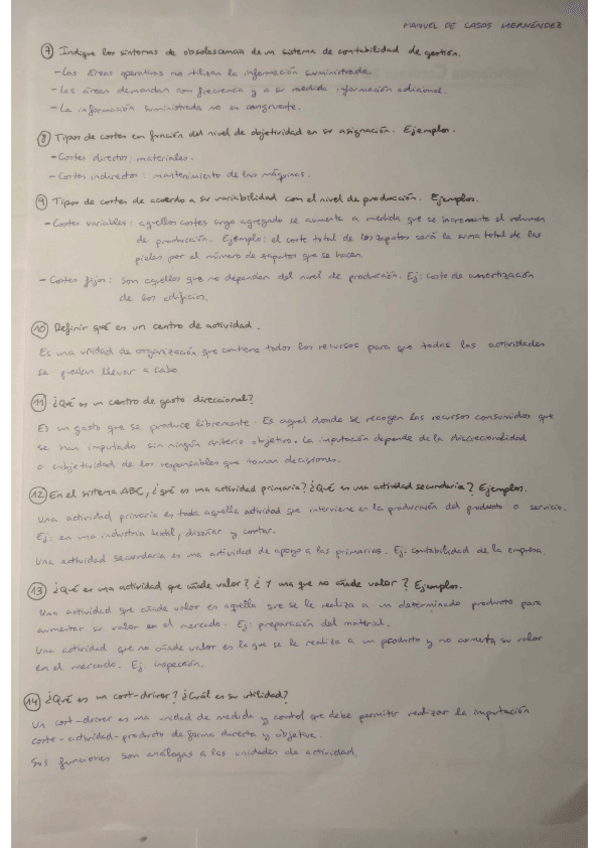 MANUEL DE CASAS HERNÁNDEZ
7 Indique los síntomas de obsolescencia de un sistema de contabilidad de gestión.
- Las áreas operativas no utilizan la información suministrada.
- Las áreas demandan con frecuencia y a su medida información adicional.
- La información suministrada no es congruente.
8 Tipos de costes en función del nivel de objetividad en su asignación. Ejemplos.
- Costes directos: materiales.
- Costes indirectos: mantenimiento de las máquinas.
9 Tipos de costes de acuerdo a su variabilidad con el nivel de producción. Ejemplos.
- Costes variables: aquellos costes cuyo agregado se aumenta a medida que se incrementa el volumen
de producción. Ejemplo: el coste total de los zapatos será la suma total de las
pieles por el número de zapatos que se hacen.
- Costes fijos: son aquellos que no dependen del nivel de producción. Ej: coste de amortización
de los edificios.
10 Definir qué es un centro de actividad.
Es una unidad de organización que contiene todos los recursos para que todas las actividades
se puedan llevar a cabo.
11 ¿Qué es un centro de gasto direccional?
Es un gasto que se produce libremente. Es aquel donde se recogen los recursos consumidos que
se han imputado sin ningún criterio objetivo. La imputación depende de la discrecionalidad
o subjetividad de los responsables que toman decisiones.
12 En el sistema ABC, ¿qué es una actividad primaria? ¿Qué es una actividad secundaria? Ejemplos.
Una actividad primaria es toda aquella actividad que interviene en la producción del producto o servicio.
Ej: en una industria textil, diseñar y cortar.
Una actividad secundaria es una actividad de apoyo a las primarias. Ej: contabilidad de la empresa.
13 ¿Qué es una actividad que añade valor? ¿Y una que no añade valor? Ejemplos.
Una actividad que añade valor es aquella que se le realiza a un determinado producto para
aumentar su valor en el mercado. Ej: preparación del material.
Una actividad que no añade valor es la que se le realiza a un producto y no aumenta su valor
en el mercado. Ej: inspección.
14 ¿Qué es un cost-driver? ¿Cuál es su utilidad?
Un cost-driver es una unidad de medida y control que debe permitir realizar la imputación
coste-actividad-producto de forma directa y objetiva.
Sus funciones son análogas a las unidades de actividad.